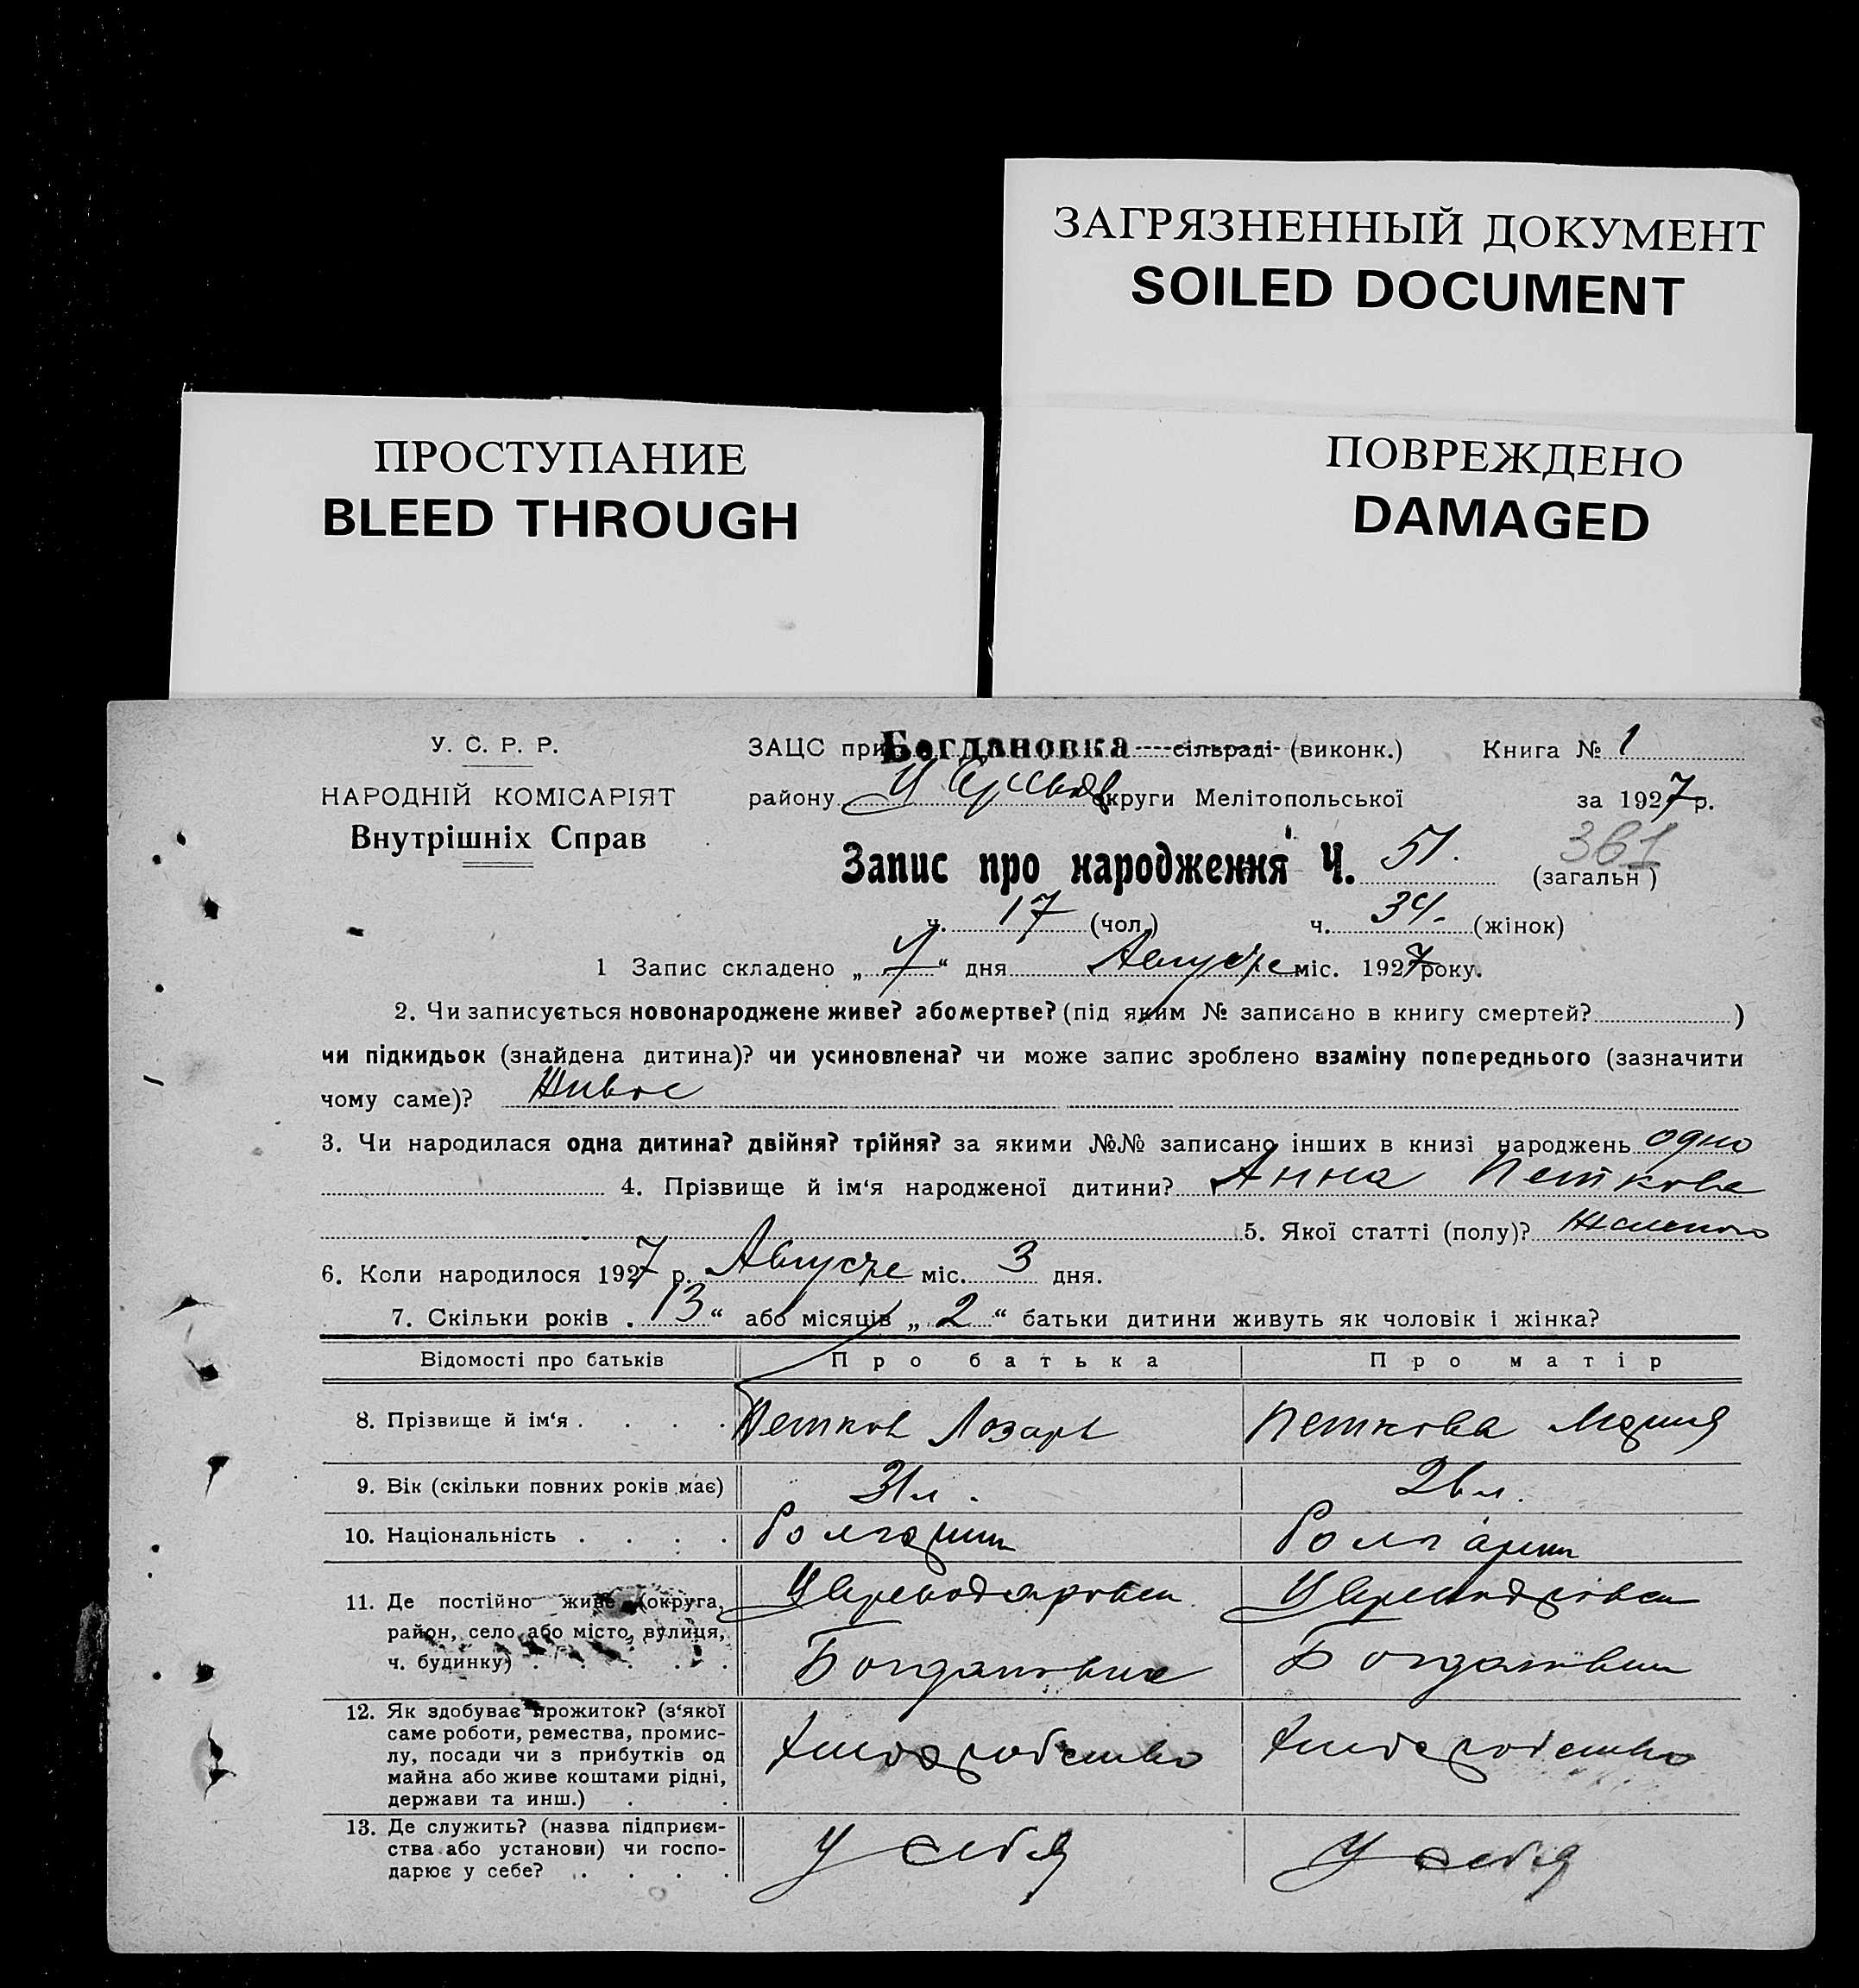 ЗАГРЯЗНЕННЫЙ ДОКУМЕНТ
SOILED DOCUMENT
ПРОСТУПАНИЕ
BLEED THROUGH
ПОВРЕЖДЕНО
DAMAGED
У. С. Р. Р.
НАРОДНІЙ КОМІСАРІЯТ
Внутрішніх Справ
ЗАЦС при Богдановка сільраді (виконк.) Книга № 1
району округи Мелітопольської за 1927 р.
Запис про народження Ч. 51. 361 (загальн)
ч. 17 (чол.) ч. 34. (жінок)
1 Запис складено „ 7 “ дня Августа міс. 1927 року.
2. Чи записується новонароджене живе? або мертве? (під яким № записано в книгу смертей? )
чи підкидьок (знайдена дитина)? чи усиновлена? чи може запис зроблено взаміну попереднього (зазначити
чому саме)? Живое
3. Чи народилася одна дитина? двійня? трійня? за якими №№ записано інших в книзі народжень одно
4. Прізвище й ім‘я народженої дитини? Анна Петкова
5. Якої статті (полу)? Женского
6. Коли народилося 1927 р. Августа міс. 3 дня.
7. Скільки років „ 13 “ або місяців „ 2 “ батьки дитини живуть як чоловік і жінка?
Відомості про батьків Про батька Про матір
8. Прізвище й ім‘я . . . . Петков Лозарь Петкова Мария
9. Вік (скільки повних років має) 31 л. 26 л.
10. Національність . . . . Болгарин Болгарин
11. Де постійно живе (округа,
район, село або місто, вулиця,
ч. будинку) . . . . .
Богдановка Богдановка
12. Як здобуває прожиток? (з‘якої
саме роботи, ремества, промис-
лу, посади чи з прибутків од
майна або живе коштами рідні,
держави та инш.) . .
Хлебородство Хлебородство
13. Де служить? (назва підприєм-
ства або установи) чи госпо-
дарює у себе? . . . .
У себя У себя